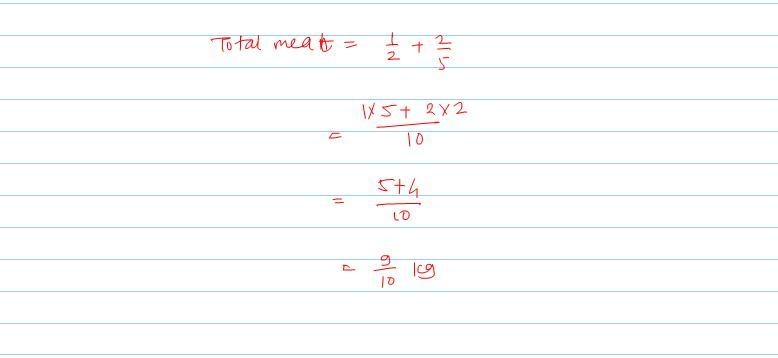 Total meat = 1/2 + 2/5
= 1×5+ 2×2/10
= 5+4/10
= 9/10 kg